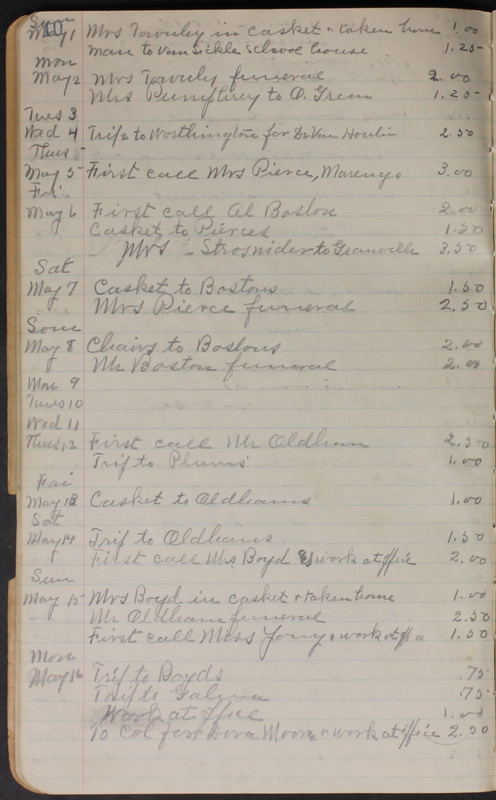 Sun
May 1 Mrs Townly in casket & taken home 1.00
Man to Van Sickle school house 1.25
Mon
May 2 Mrs Townly funeral 2.00
Mrs Pumphrey to O. Green 1.25
Tues 3
Wed 4 Trip to Worthington for De Van Houlin 2.50
Thurs
May 5 First call Mrs Pierce, Marengo 3.00
Fri
May 6 First call Al Boston 2.00
Casket to Pierces 1.50
Mrs Strosnider to Granville 3.50
Sat
May 7 Casket to Bostons 1.50
Mrs Pierce funeral 2.50
Sun
May 8 Chairs to Bostons 2.00
Mr Boston funeral 2.00
Mon 9
Tues 10
Wed 11
Thurs 12 First call Mr Oldham 2.50
Trip to Plums 1.00
Fri
May 13 Casket to Oldhams 1.00
Sat
May 14 Trip to Oldhams 1.50
First call Mrs Boyd & work at office 2.00
Sun
May 15 Mrs Boyd in casket & taken home 1.00
Mr Oldham funeral 2.50
First call Miss & work at 1.50
Mon
May 16 Trip to Boyds .75
Trip to Galena .75
Work at office 1.00
To Col for Dora Moon & work at office 2.50